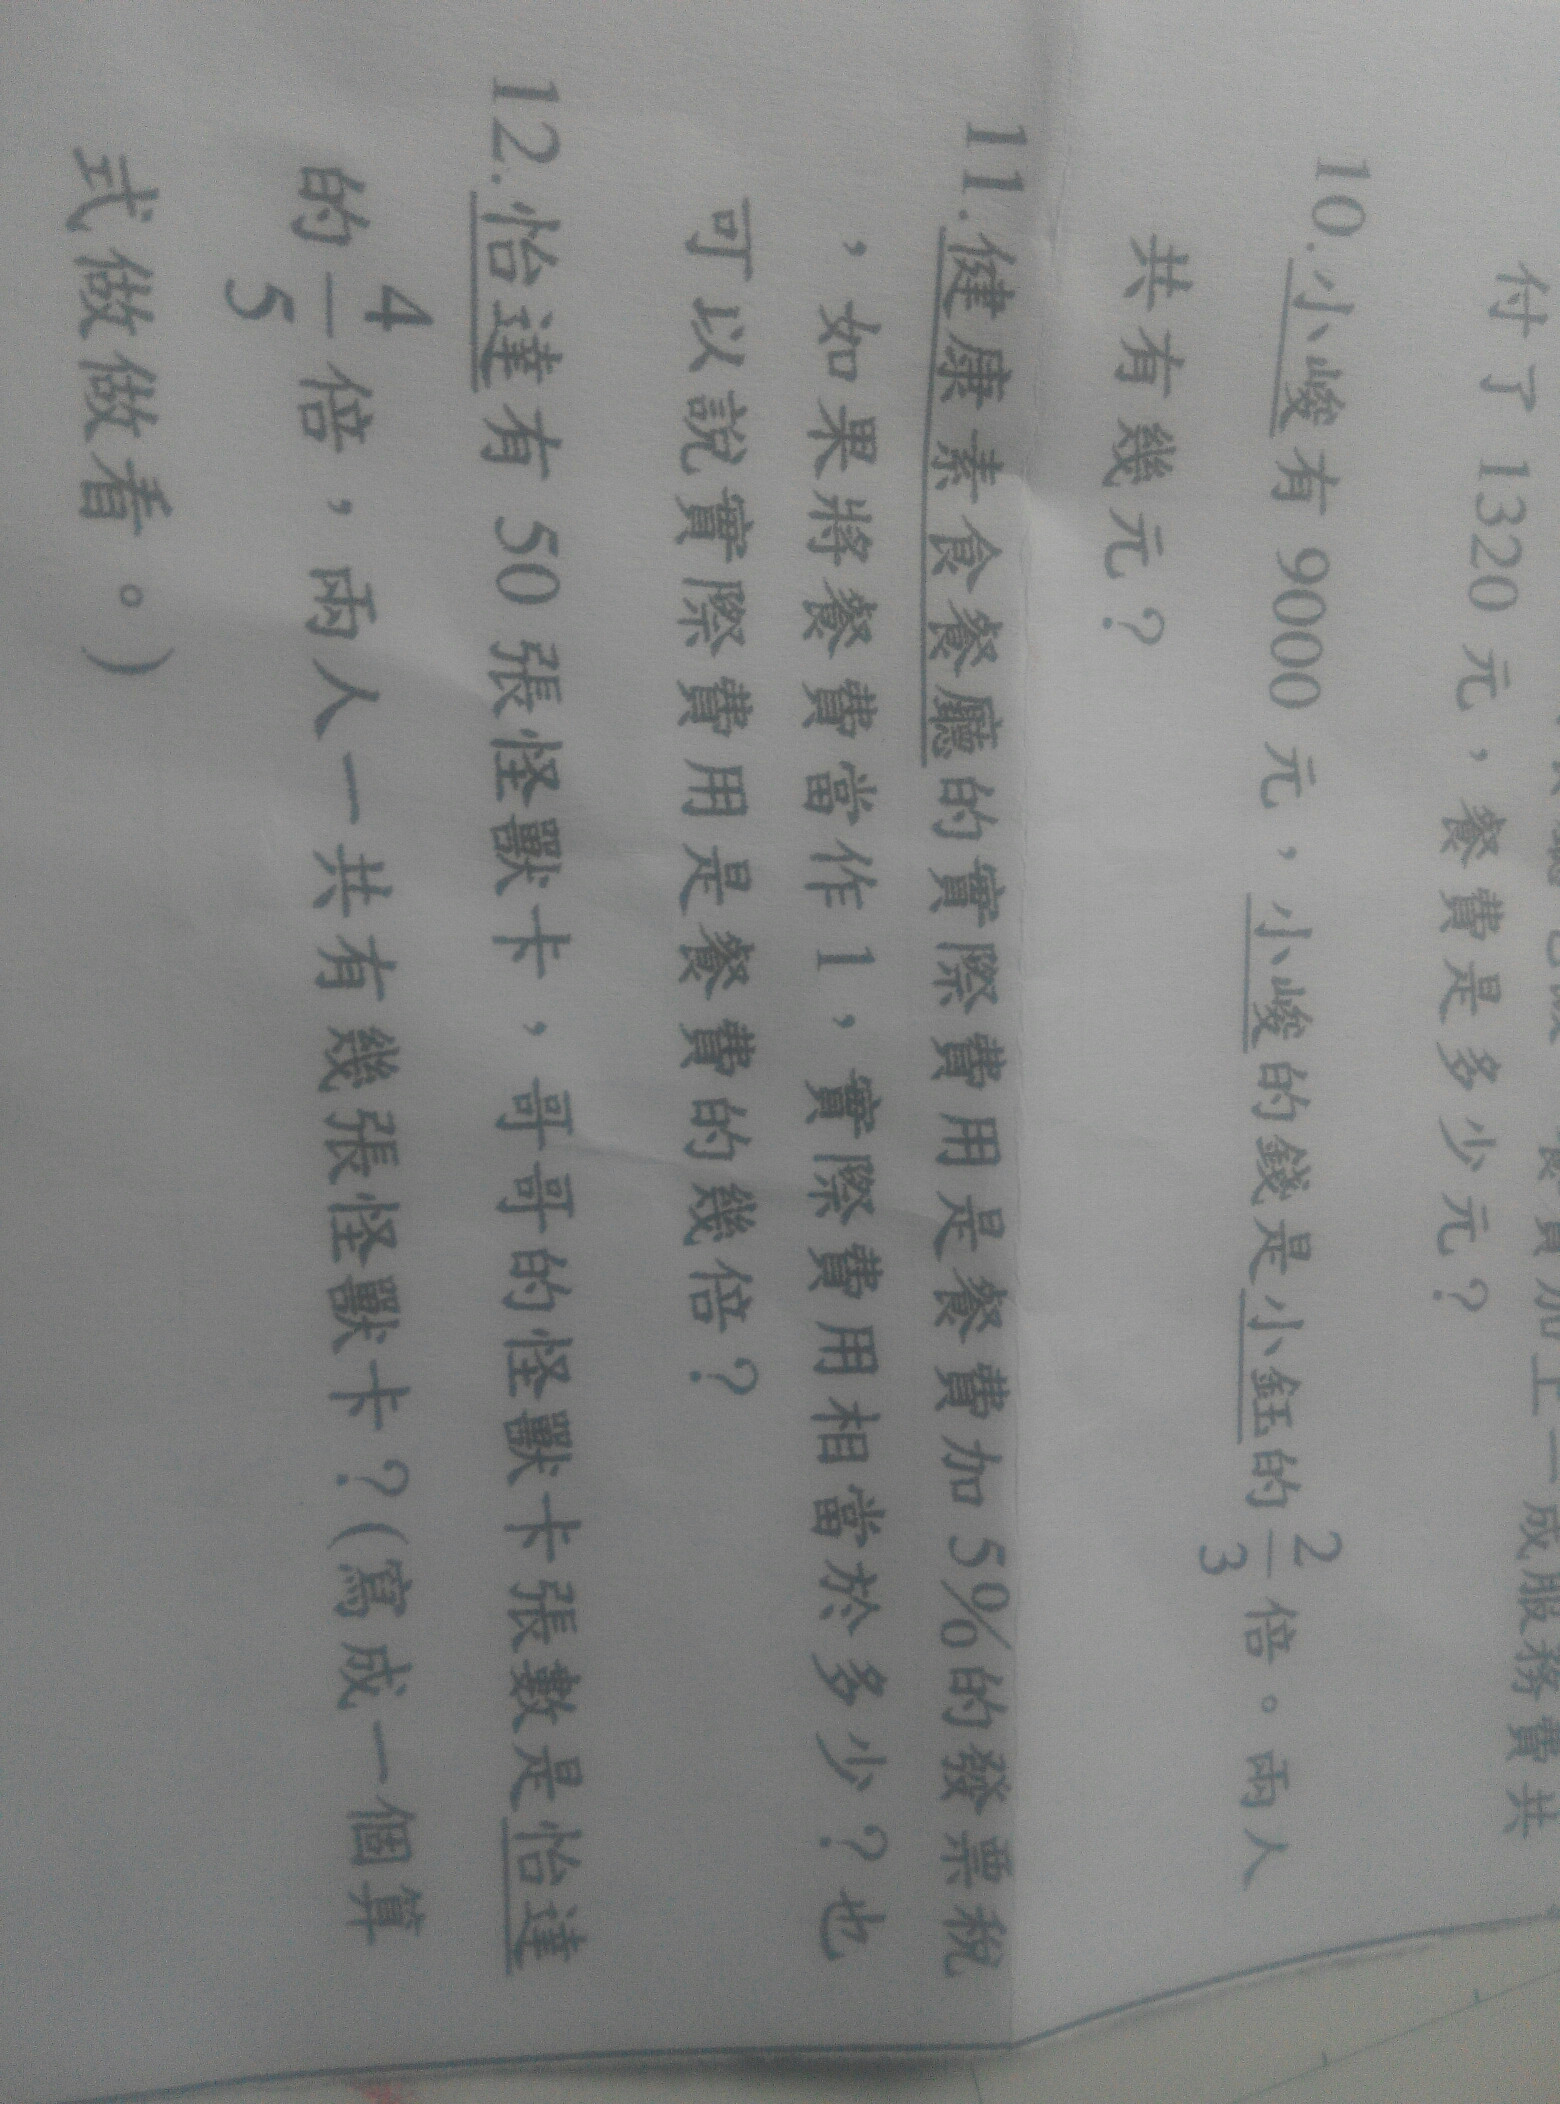 餐費加上一成服務費共
付了 1320 元，餐費是多少元？
10.小峻有 9000 元，小峻的錢是小鈺的 2/3 倍。兩人
共有幾元？
11.健康素食餐廳的實際費用是餐費加 5%的發票稅
，如果將餐費當作 1，實際費用相當於多少？也
可以說實際費用是餐費的幾倍？
12.怡達有 50 張怪獸卡，哥哥的怪獸卡張數是怡達
的 4/5 倍，兩人一共有幾張怪獸卡？(寫成一個算
式做做看。)